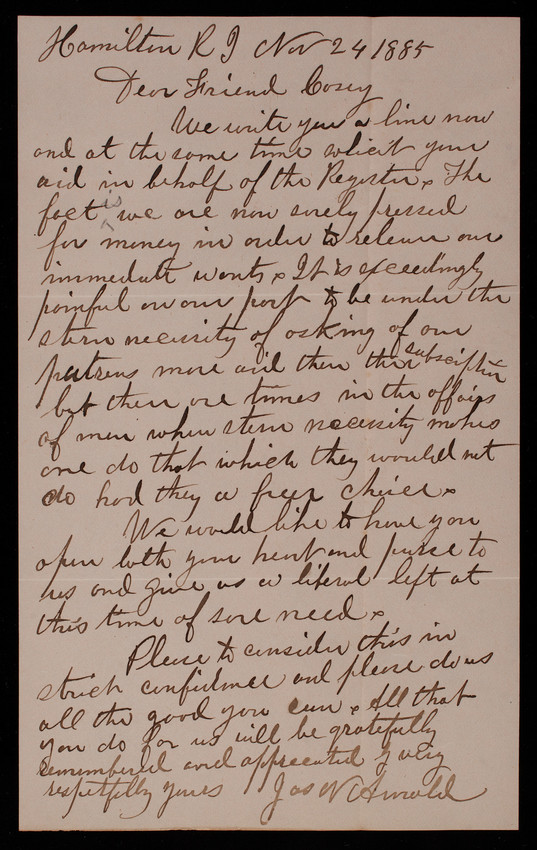 Hamilton R I Nov 24 1885
Dear Friend Cosey
We write you a line now
and at the same time solicit your
aid in behalf of the Register. The
fact is we are now sorely pressed
for money in order to releive our
immediate wants. It is exceedingly
painful on our part to be under the
stern necessity of asking of our
patrons more aid then their subscription
but there are times in the affairs
of men when stern necessity makes
one do that which they would not
do had they a freer choice.
We would like to have you
open both your heart and purse to
us and give us a liberal left at
this time of sore need.
Please to consider this in
strick confidence and please do us
all the good you can. All that
you do for us will be gratefully
remembered and appreceated of very
respetfully yours Jas N Arnold